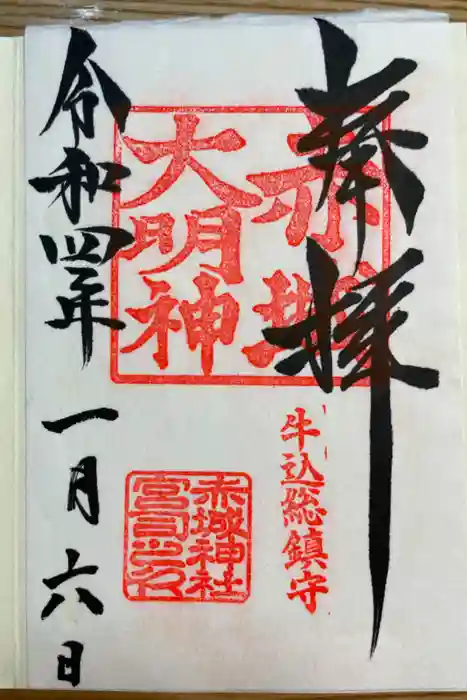 奉拝
赤城
大明神
牛込総鎮守
赤城神社
宮司之印
令和四年 一月六日